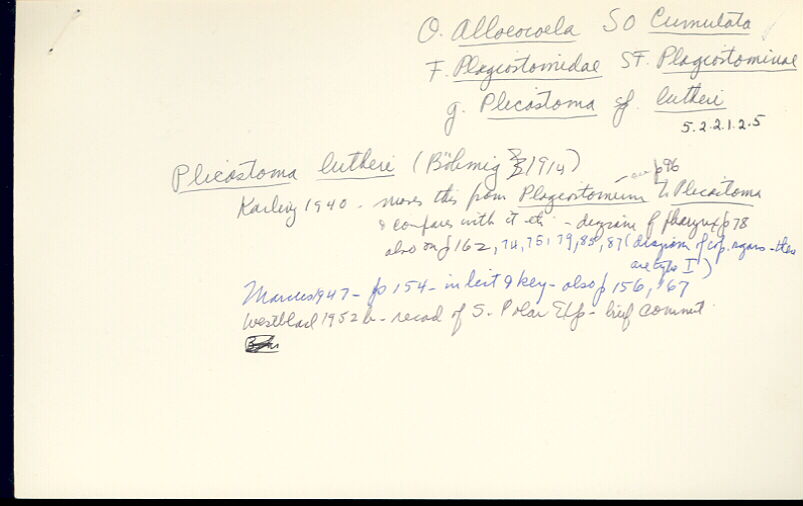 O. Alloeocoela SO Cumulata
F. Plagiostomidae SF. Plagiostominae
g. Plicastoma sp. lutheri
5.2.2.1.2.5
Plicastoma lutheri (Böhmig 1914)
on p96
Karling 1940 - moves this from Plagiostomum to Plicastoma
& compares with it etc - diagram of pharynx p78
also on p 162, 74, 75, 79, 85, 87 (diagram of cop. organs - this
are type I)
Marcus 1947 - p 154 - in list & key - also p 156, 167
Westblad 1952 b - record of S. Polar Exp - brief comment